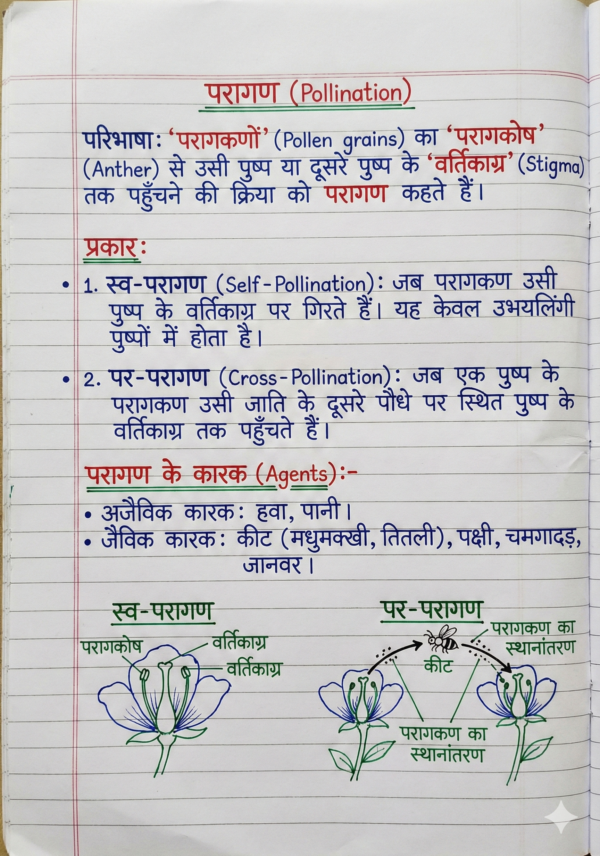 परागण (Pollination)
परिभाषा: 'परागकणों' (Pollen grains) का 'परागकोष'
(Anther) से उसी पुष्प या दूसरे पुष्प के 'वर्तिकाग्र' (Stigma)
तक पहुँचने की क्रिया को परागण कहते हैं।
प्रकार:
• 1. स्व-परागण (Self-Pollination): जब परागकण उसी
पुष्प के वर्तिकाग्र पर गिरते हैं। यह केवल उभयलिंगी
पुष्पों में होता है।
• 2. पर-परागण (Cross-Pollination): जब एक पुष्प के
परागकण उसी जाति के दूसरे पौधे पर स्थित पुष्प के
वर्तिकाग्र तक पहुँचते हैं।
परागण के कारक (Agents):-
• अजैविक कारक: हवा, पानी।
• जैविक कारक: कीट (मधुमक्खी, तितली), पक्षी, चमगादड़,
जानवर।
स्व-परागण
परागकोष
वर्तिकाग्र
वर्तिकाग्र
पर-परागण
कीट
परागकण का
स्थानांतरण
परागकण का
स्थानांतरण